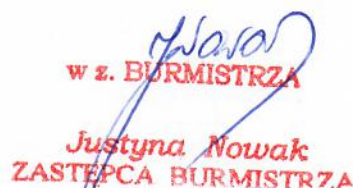 w z. BURMISTRZA
Justyna Nowak
ZASTĘPCA BURMISTRZA